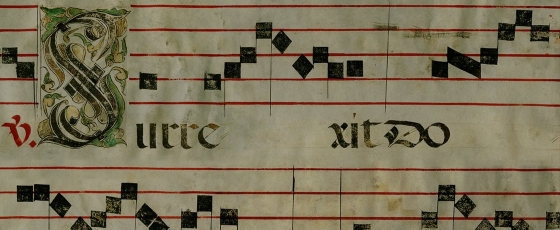 v. Surre xit Do